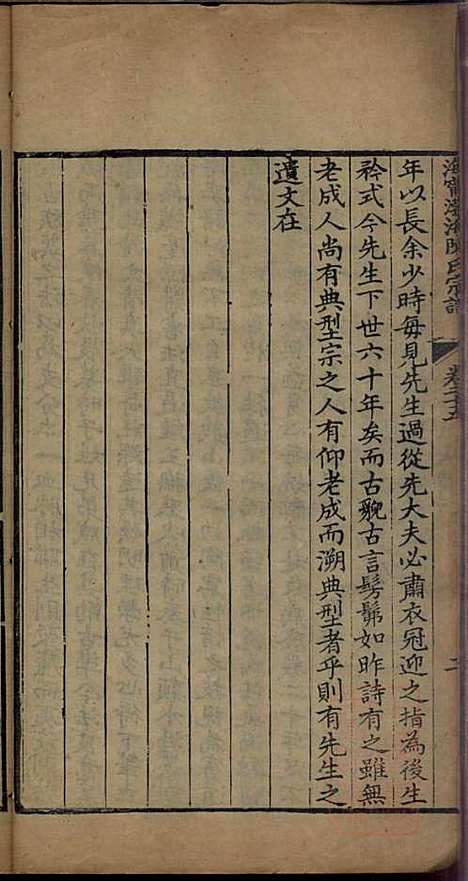 海寧渤海陳氏宗譜 卷二十五 二
年以長余少時每見先生過從先大夫必肅衣冠迎之指為後生
矜式今先生下世六十年矣而古貌古言髣髴如昨詩有之雖無
老成人尚有典型宗之人有仰老成而溯典型者乎則有先生之
遺文在